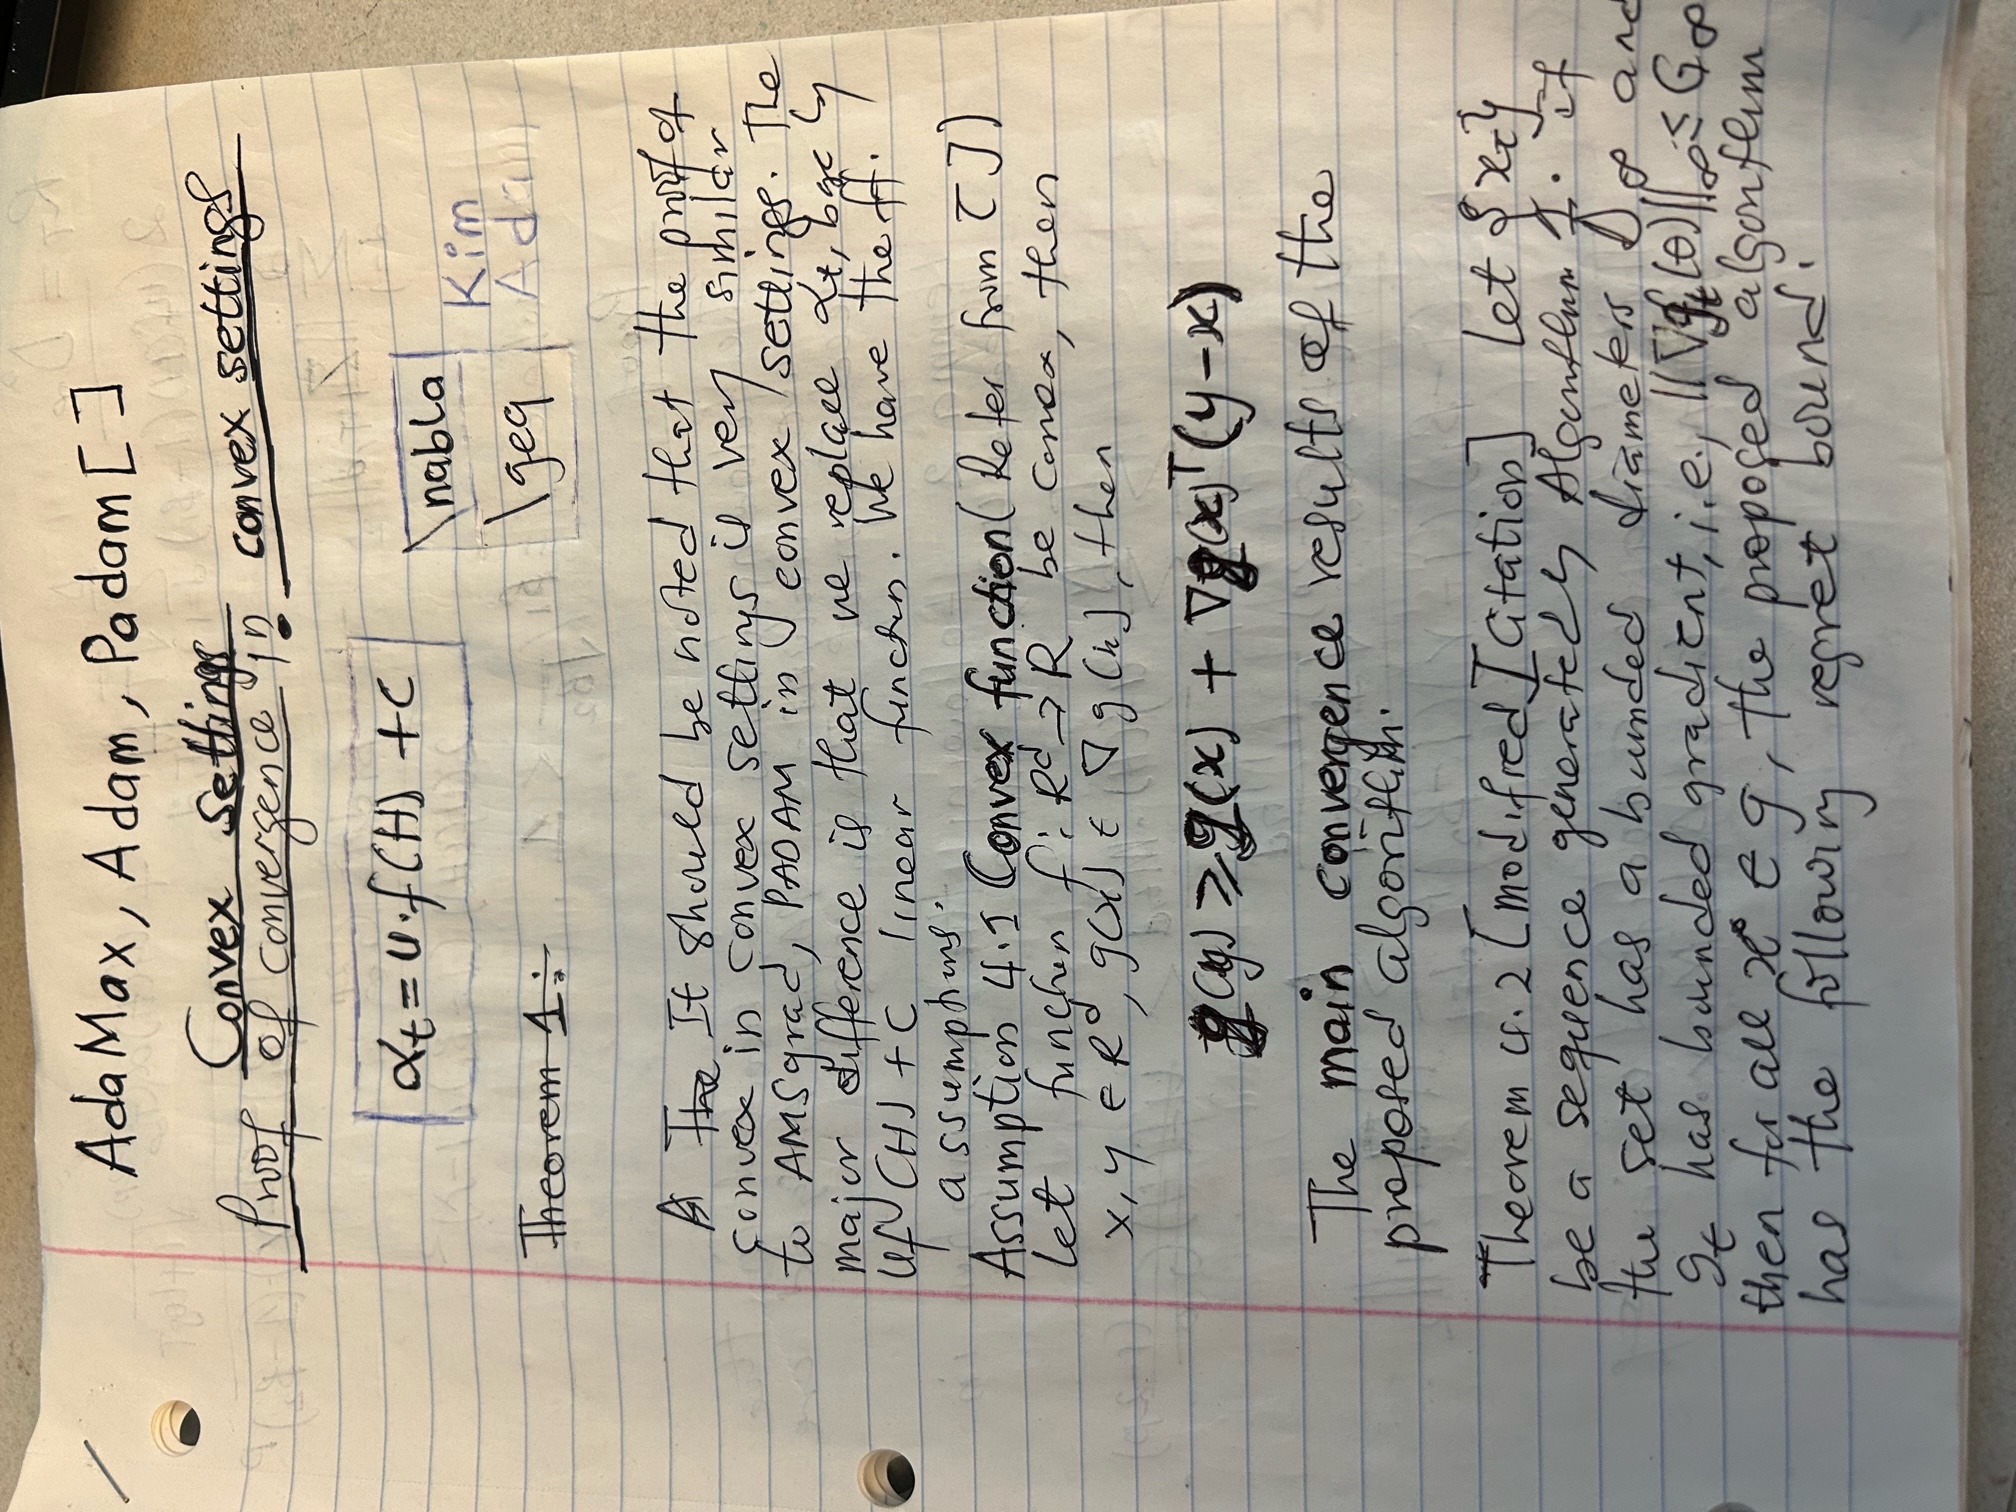 AdaMax, Adam, Padam [ ]
Convex settings
Proof of convergence in convex settings
αt = u·f(H) + C
\nabla
\geq
Kim
Adam
Theorem 1:
A The It should be noted that the proof of
convex in convex settings is very similar
to AMSgrad, PADAM in convex settings. The
major difference is that we replace αt, by
uf(H) + C linear function. We have the ff.
assumptions.
Assumption 4.1 Convex function (Refer from [ ])
let function f: R^d → R be convex, then
x, y ∈ R^d, g(x) ∈ ∇g(x), then
g(y) ≥ g(x) + ∇g(x)^T (y-x)
The main convergence results of the
proposed algorithm.
Theorem 4.2 [modified] [Citation] Let {xt}
be a sequence generated by Algorithm 1. if
the set has a bounded diameters D∞ and
gt has bounded gradient, i.e., ||∇gt(θ)||∞ ≤ G∞
then for all x* ∈ G, the proposed algorithm
has the following regret bound.